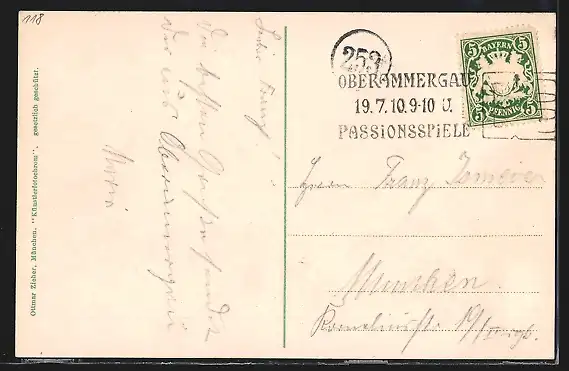 118
Ottmar Zieher, München. "Künstlerfotochrom". gesetzlich geschützt.
Lieber Franz!
Die besten Grüße sendet
Dir aus Oberammergau
Maria
253
OBERAMMERGAU
19.7.10.9-10 U.
PASSIONSSPIELE
5 BAYERN 5
5 PFENNIG 5
Herrn Franz
München.
19/